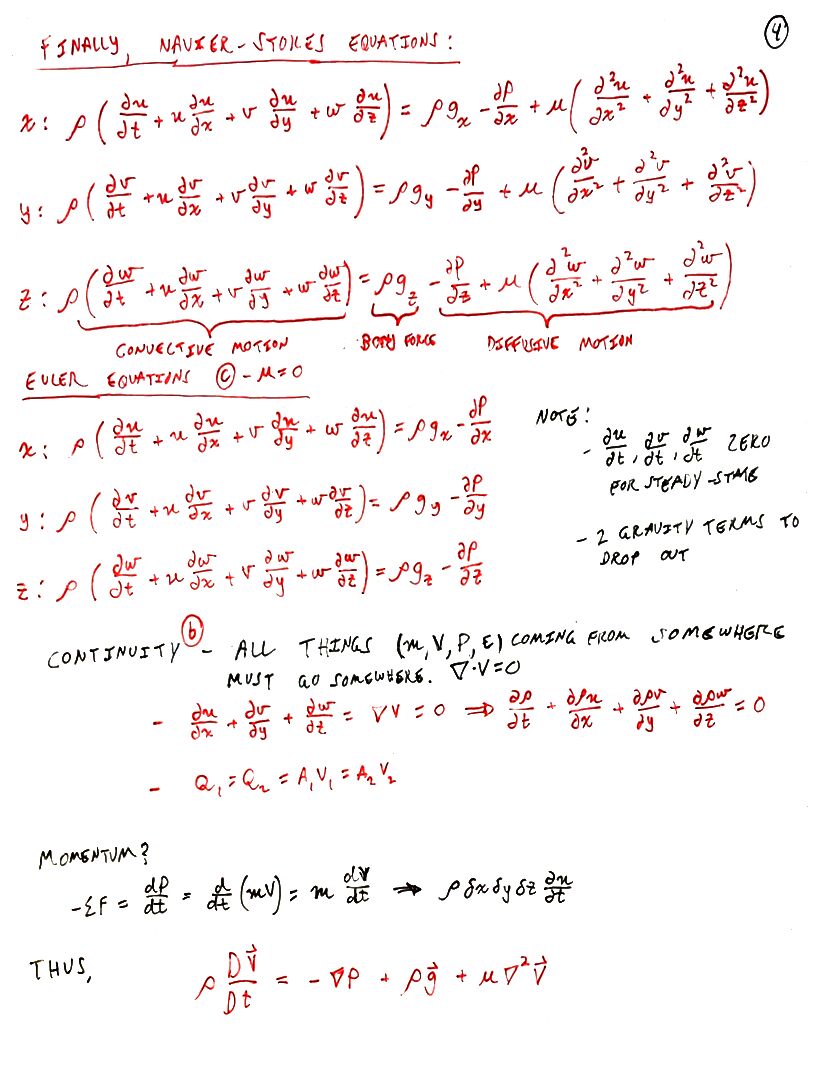 FINALLY, NAVIER-STOKES EQUATIONS:
4
x: ρ(∂u/∂t + u ∂u/∂x + v ∂u/∂y + w ∂u/∂z) = ρgx - ∂P/∂x + μ(∂²u/∂x² + ∂²u/∂y² + ∂²u/∂z²)
y: ρ(∂v/∂t + u ∂v/∂x + v ∂v/∂y + w ∂v/∂z) = ρgy - ∂P/∂y + μ(∂²v/∂x² + ∂²v/∂y² + ∂²v/∂z²)
z: ρ(∂w/∂t + u ∂w/∂x + v ∂w/∂y + w ∂w/∂z) = ρgz - ∂P/∂z + μ(∂²w/∂x² + ∂²w/∂y² + ∂²w/∂z²)
CONVECTIVE MOTION BODY FORCE DIFFUSIVE MOTION
EULER EQUATIONS © - μ=0
x: ρ(∂u/∂t + u ∂u/∂x + v ∂u/∂y + w ∂u/∂z) = ρgx - ∂P/∂x
y: ρ(∂v/∂t + u ∂v/∂x + v ∂v/∂y + w ∂v/∂z) = ρgy - ∂P/∂y
z: ρ(∂w/∂t + u ∂w/∂x + v ∂w/∂y + w ∂w/∂z) = ρgz - ∂P/∂z
NOTE:
- ∂u/∂t, ∂v/∂t, ∂w/∂t ZERO
FOR STEADY-STATE
- 2 GRAVITY TERMS TO
DROP OUT
CONTINUITY ⓑ - ALL THINGS (m, V, P, E) COMING FROM SOMEWHERE
MUST GO SOMEWHERE. ∇·V=0
- ∂u/∂x + ∂v/∂y + ∂w/∂z = ∇V = 0 ⇒ ∂ρ/∂t + ∂ρu/∂x + ∂ρv/∂y + ∂ρw/∂z = 0
- Q₁ = Q₂ = A₁V₁ = A₂V₂
MOMENTUM?
-ΣF = dP/dt = d/dt (mV) = m dV/dt ⇒ ρ δx δy δz ∂u/∂t
THUS,
ρ DV⃗/Dt = - ∇P + ρg⃗ + μ∇²V⃗